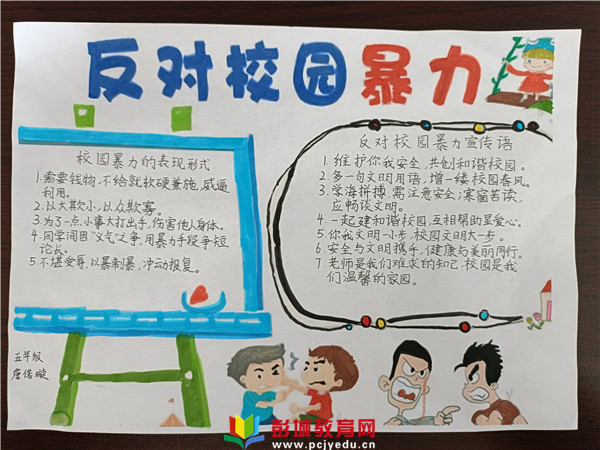 反对校园暴力
校园暴力的表现形式
1.索要钱物,不给就软硬兼施,威逼
利用。
2.以大欺小,以众欺寡。
3.为了一点小事大打出手,伤害他人身体。
4.同学间因“义气”之争,用暴力手段争短
论长。
5.不堪受辱,以暴制暴,冲动报复。
反对校园暴力宣传语
1.维护你我安全,共创和谐校园。
2.多一句文明用语,增一缕校园春风。
3.学海拼搏,需注意安全;寒窗苦读,
应畅谈文明。
4.一起建和谐校园,互相帮助显爱心。
5.你我文明一小步,校园文明大一步。
6.安全与文明携手,健康与美丽同行。
7.老师是我们难求的知己,校园是我
们温馨的家园。
五年级
彭城教育网
www.pcjyedu.cn